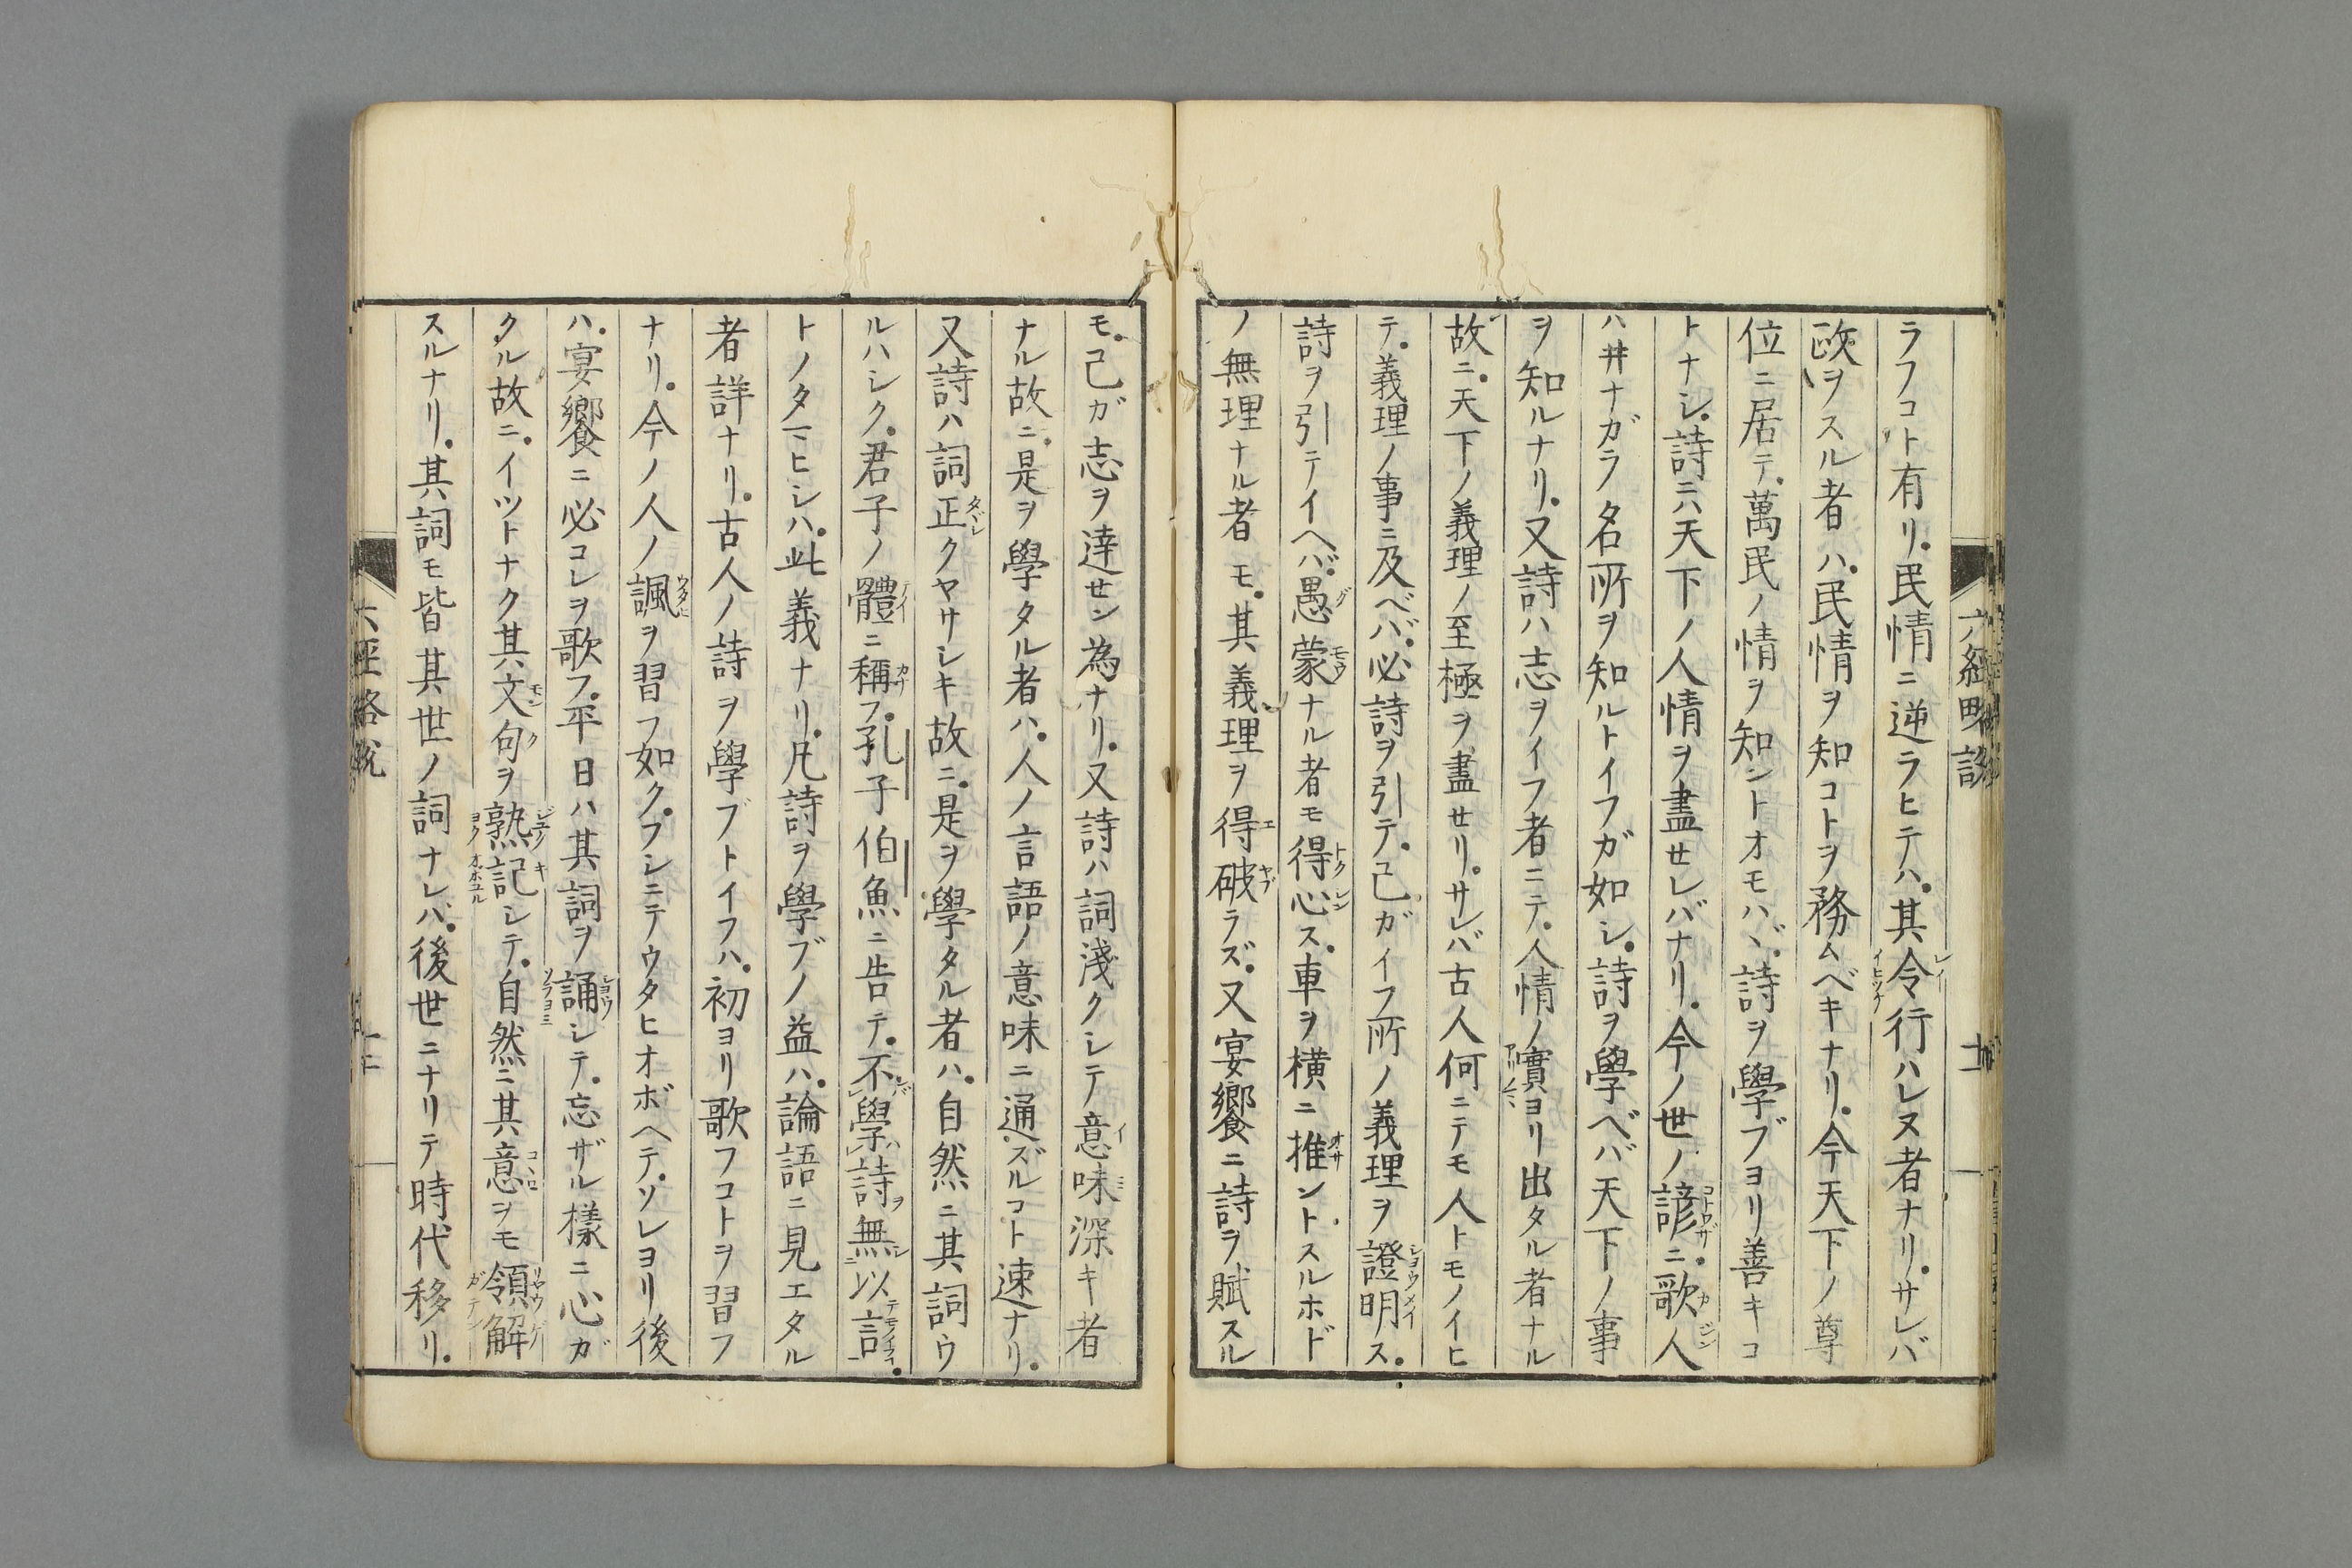 ラフコト有リ。民情ニ逆ラヒテハ。其令行ハレヌ者ナリ。サレバ
政ヲスル者ハ。民情ヲ知コトヲ務ムベキナリ。今天下ノ尊
位ニ居テ。萬民ノ情ヲ知ントオモハヾ。詩ヲ學ブヨリ善キコ
トナシ。詩ニハ天下ノ人情ヲ盡セレバナリ。今ノ世ノ諺ニ。歌人
ハ井ナガラ名所ヲ知ルトイフガ如シ。詩ヲ學ベバ天下ノ事
ヲ知ルナリ。又詩ハ志ヲイフ者ニテ。人情ノ實ヨリ出タル者ナル
故ニ。天下ノ義理ノ至極ヲ盡セリ。サレバ古人何ニテモ人トモノイヒ
テ。義理ノ事ニ及ベバ。必詩ヲ引テ。己ガイフ所ノ義理ヲ證明ス。
詩ヲ引テイヘバ。愚蒙ナル者モ得心ス。車ヲ横ニ推ントスルホド
ノ無理ナル者モ。其義理ヲ得破ラズ。又宴饗ニ詩ヲ賦スル
モ。己ガ志ヲ達セン為ナリ。又詩ハ詞淺クシテ意味深キ者
ナル故ニ。是ヲ學タル者ハ。人ノ言語ノ意味ニ通ズルコト速ナリ。
又詩ハ詞正クヤサシキ故ニ。是ヲ學タル者ハ。自然ニ其詞ウ
ルハシク。君子ノ體ニ稱フ。孔子伯魚ニ告テ。不學詩無以言。
トノタマヒシハ。此義ナリ。凡詩ヲ學ブノ益ハ。論語ニ見エタル
者詳ナリ。古人ノ詩ヲ學ブトイフハ。初ヨリ歌フコトヲ習フ
ナリ。今ノ人ノ諷ヲ習フ如ク。フシニテウタヒオボヘテ。ソレヨリ後
ハ。宴饗ニ必コレヲ歌フ。平日ハ其詞ヲ誦シテ。忘ザル樣ニ心ガ
クル故ニ。イツトナク其文句ヲ熟記シテ。自然ニ其意ヲモ領解
スルナリ。其詞モ皆其世ノ詞ナレバ。後世ニナリテ時代移リ。
六經略説